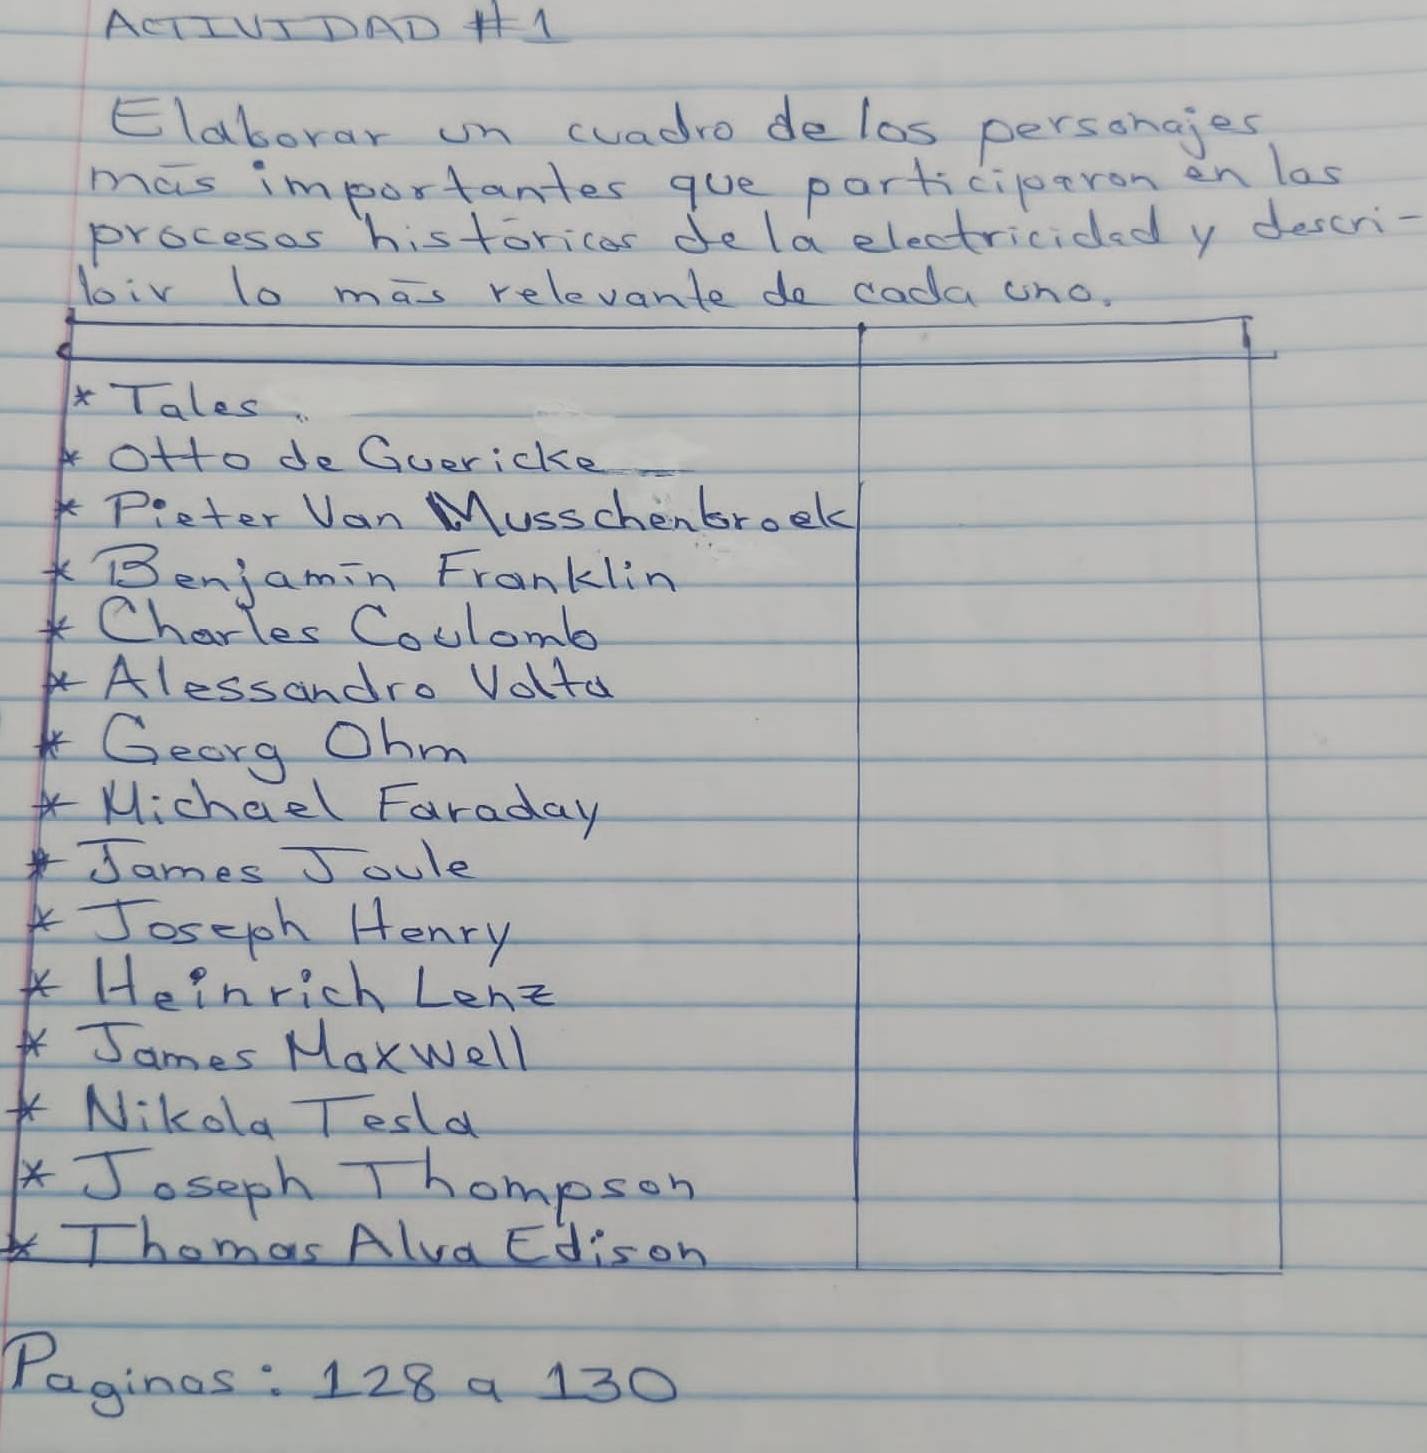 ACTIVIDAD #1
Elaborar un cuadro de los personajes
más importantes que participaron en los
procesos históricos de la electricidad y descri-
bir lo más relevante de cada uno.
* Tales.
* Otto de Guericke
* Pieter Van Musschenbroek
* Benjamín Franklin
* Charles Coulomb
* Alessandro Volta
* Georg Ohm
* Michael Faraday
* James Joule
* Joseph Henry
* Heinrich Lenz
* James Maxwell
* Nikola Tesla
* Joseph Thompson
* Thomas Alva Edison
Paginas: 128 a 130